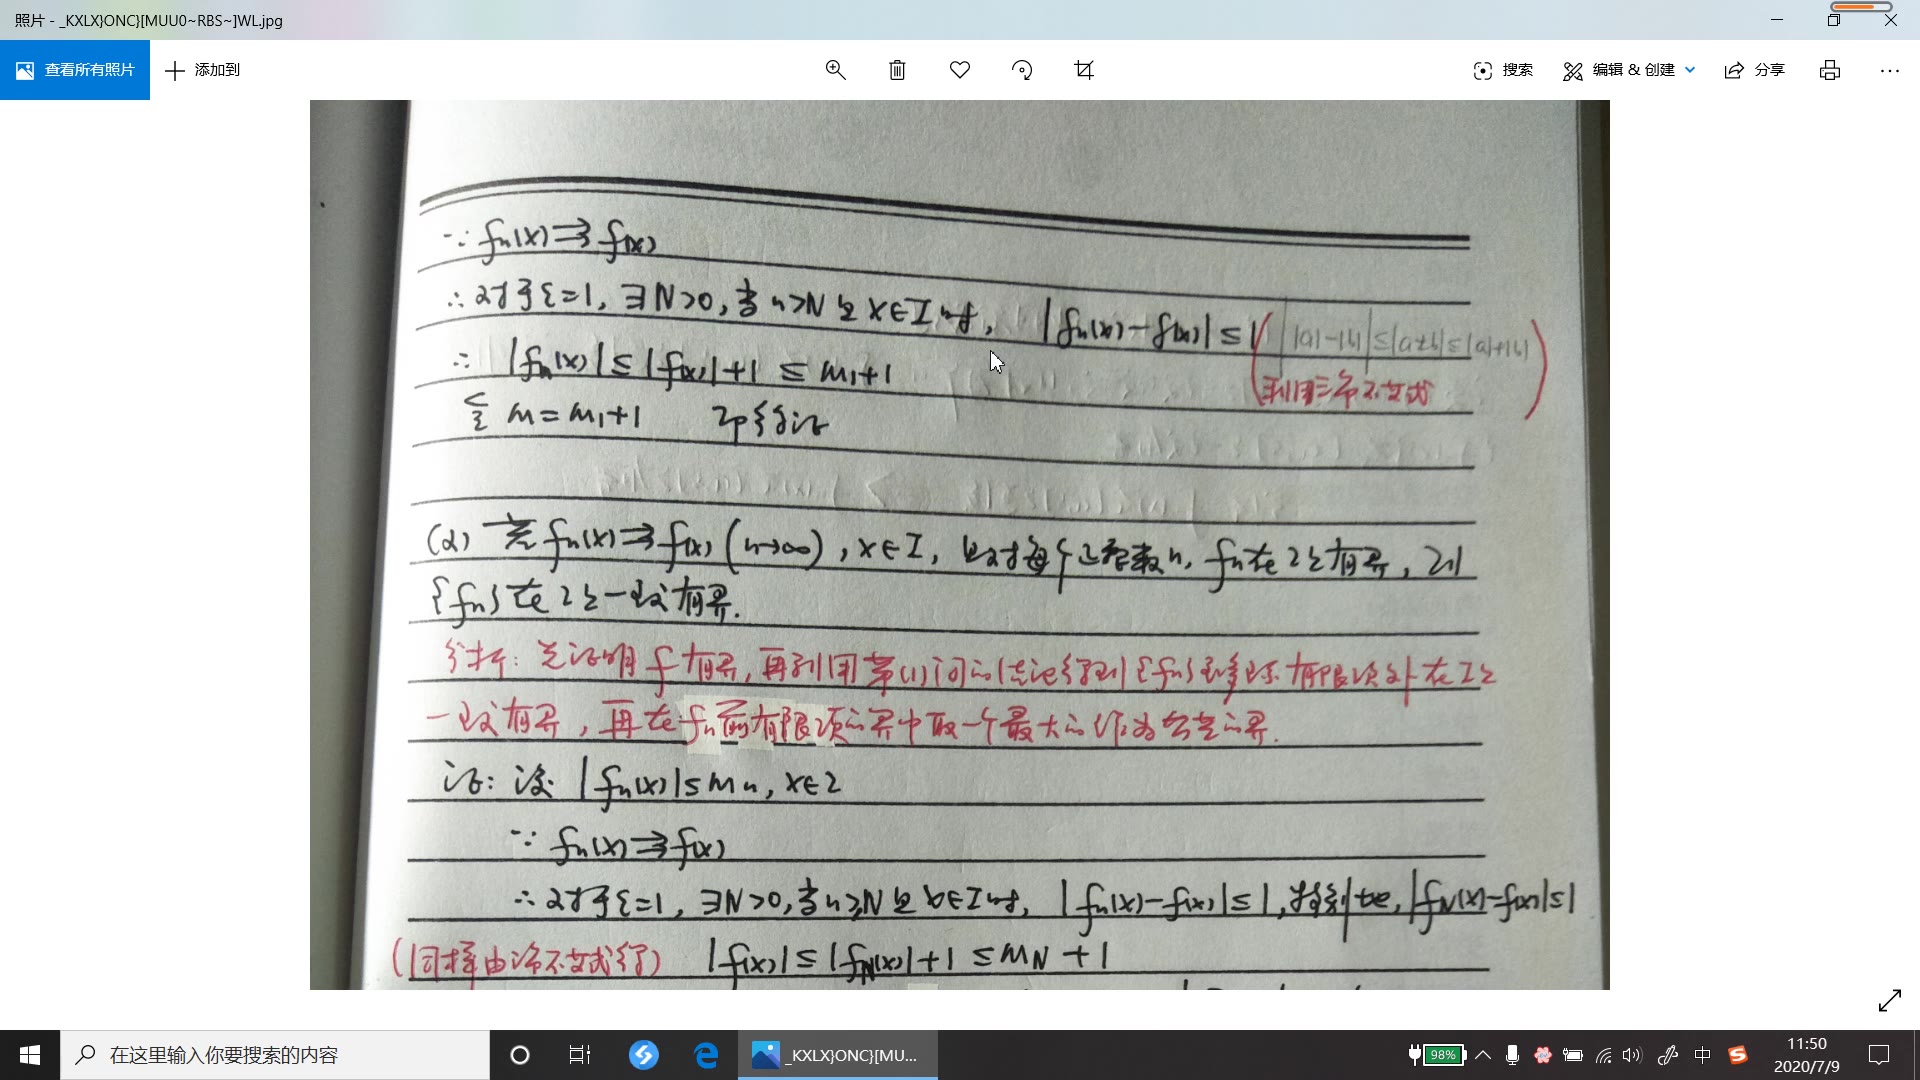 照片 - _KXLX}ONC}[MUU0~RBS~]WL.jpg
查看所有照片 添加到 搜索 编辑 & 创建 分享
∵ fn(x)⇉f(x)
∴ 对于ε=1, ∃N>0, 当n>N且x∈I时, |fn(x)-f(x)|≤1 ( ||a|-|b||≤|a±b|≤|a|+|b|
∴ |fn(x)|≤|f(x)|+1≤M1+1 利用三角不等式)
令 M=M1+1 即得证
(2) 若fn(x)⇉f(x) (n→∞), x∈I, 且对每个正整数n, fn在I上有界, 则
{fn}在I上一致有界.
分析: 先证明f有界, 再利用第(1)问的结论得到{fn}至多除有限项外在I上
一致有界, 再在fn前有限项的界中取一个最大的作为公共的界.
证: 设 |fn(x)|≤Mn, x∈I
∵ fn(x)⇉f(x)
∴ 对于ε=1, ∃N>0, 当n≥N且∀x∈I时, |fn(x)-f(x)|≤1, 特别地, |fN(x)-f(x)|≤1
(同样由三角不等式得) |f(x)|≤|fN(x)|+1≤MN+1
在这里输入你要搜索的内容
_KXLX}ONC}[MU...
98%
中
11:50
2020/7/9